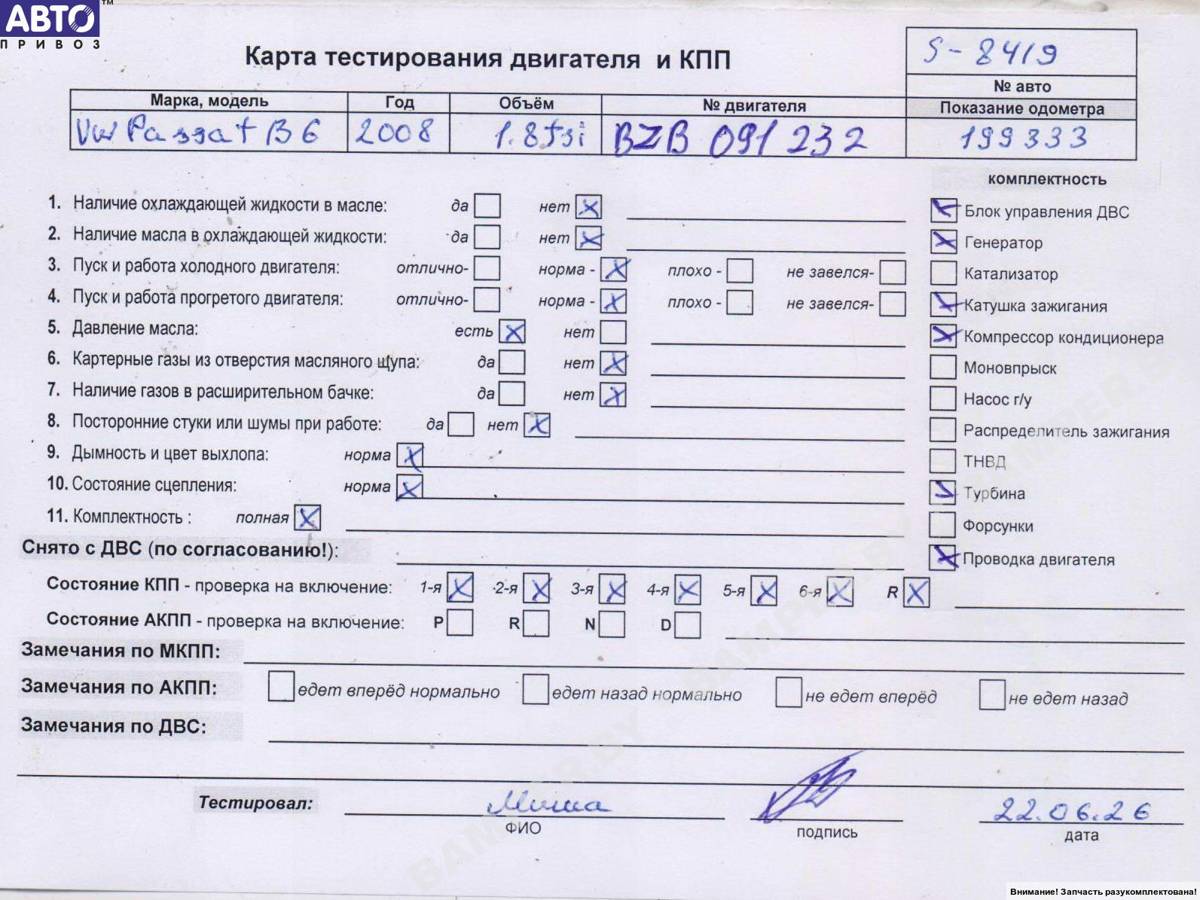 АВТО™
ПРИВОЗ
Карта тестирования двигателя и КПП
S-8419
№ авто
Марка, модель Год Объём № двигателя Показание одометра
VW Passat B6 2008 1.8fsi BZB 091 232 199333
комплектность
1. Наличие охлаждающей жидкости в масле: да нет
Блок управления ДВС
2. Наличие масла в охлаждающей жидкости: да нет
Генератор
3. Пуск и работа холодного двигателя: отлично- норма - плохо - не завелся-
Катализатор
4. Пуск и работа прогретого двигателя: отлично- норма - плохо - не завелся-
Катушка зажигания
5. Давление масла: есть нет
Компрессор кондиционера
6. Картерные газы из отверстия масляного щупа: да нет
Моновпрыск
7. Наличие газов в расширительном бачке: да нет
Насос г/у
8. Посторонние стуки или шумы при работе: да нет
Распределитель зажигания
9. Дымность и цвет выхлопа: норма
ТНВД
10. Состояние сцепления: норма
Турбина
11. Комплектность : полная
Форсунки
Снято с ДВС (по согласованию!):
Проводка двигателя
Состояние КПП - проверка на включение: 1-я 2-я 3-я 4-я 5-я 6-я R
Состояние АКПП - проверка на включение: P R N D
Замечания по МКПП:
Замечания по АКПП: едет вперёд нормально едет назад нормально не едет вперёд не едет назад
Замечания по ДВС:
Тестировал: Миша 22.06.26
ФИО подпись дата
BAMPER.BY BAMPER.BY BAMPER.BY
Внимание! Запчасть разукомплектована!